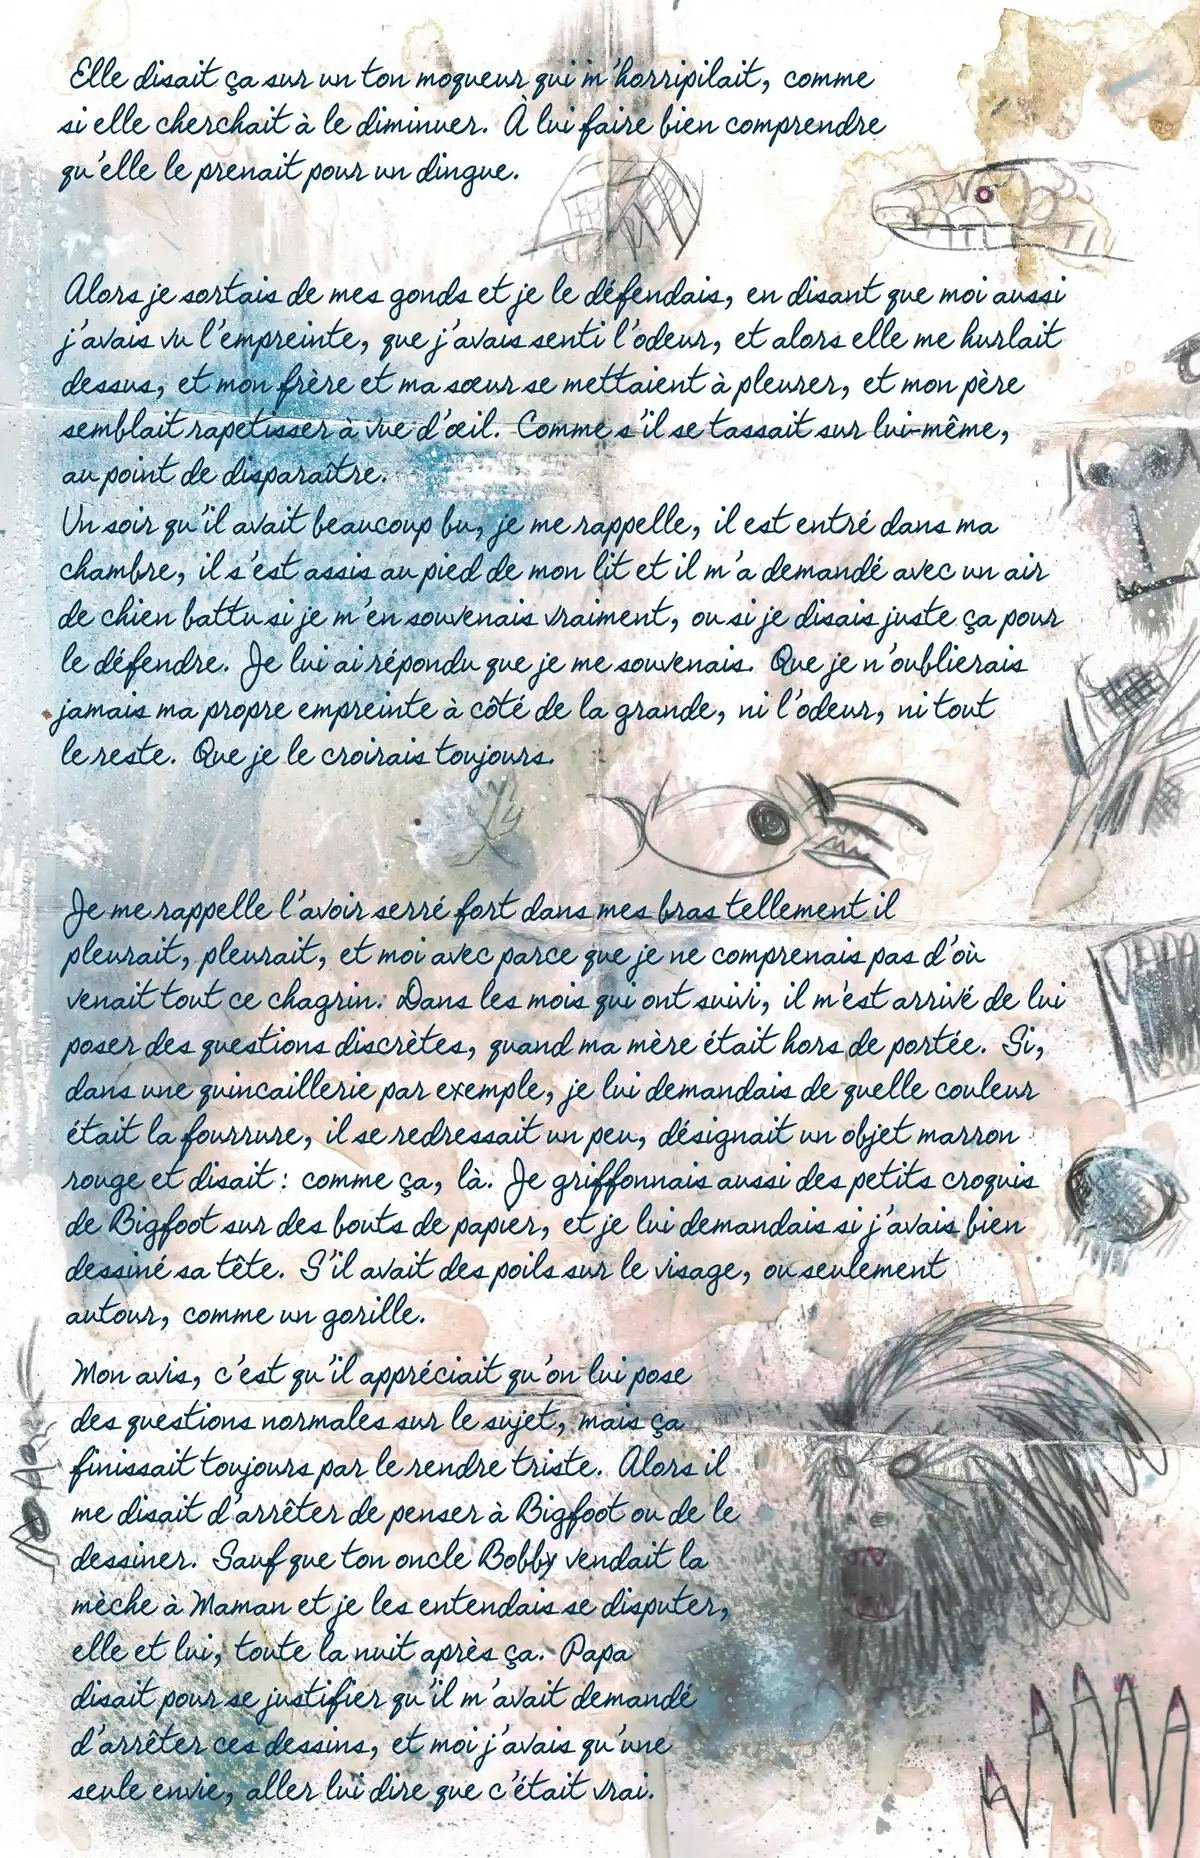 Elle disait ça sur un ton moqueur qui m'horripilait, comme
si elle cherchait à le diminuer. À lui faire bien comprendre
qu'elle le prenait pour un dingue.
Alors je sortais de mes gonds et je le défendais, en disant que moi aussi
j'avais vu l'empreinte, que j'avais senti l'odeur, et alors elle me hurlait
dessus, et mon frère et ma sœur se mettaient à pleurer, et mon père
semblait rapetisser à vue d'œil. Comme s'il se tassait sur lui-même,
au point de disparaître.
Un soir qu'il avait beaucoup bu, je me rappelle, il est entré dans ma
chambre, il s'est assis au pied de mon lit et il m'a demandé avec un air
de chien battu si je m'en souvenais vraiment, ou si je disais juste ça pour
le défendre. Je lui ai répondu que je me souvenais. Que je n'oublierais
jamais ma propre empreinte à côté de la grande, ni l'odeur, ni tout
le reste. Que je le croirais toujours.
Je me rappelle l'avoir serré fort dans mes bras tellement il
pleurait, pleurait, et moi avec parce que je ne comprenais pas d'où
venait tout ce chagrin. Dans les mois qui ont suivi, il m'est arrivé de lui
poser des questions discrètes, quand ma mère était hors de portée. Si,
dans une quincaillerie par exemple, je lui demandais de quelle couleur
était la fourrure, il se redressait un peu, désignait un objet marron
rouge et disait : comme ça, là. Je griffonnais aussi des petits croquis
de Bigfoot sur des bouts de papier, et je lui demandais si j'avais bien
dessiné sa tête. S'il avait des poils sur le visage, ou seulement
autour, comme un gorille.
Mon avis, c'est qu'il appréciait qu'on lui pose
des questions normales sur le sujet, mais ça
finissait toujours par le rendre triste. Alors il
me disait d'arrêter de penser à Bigfoot ou de le
dessiner. Sauf que ton oncle Bobby vendait la
mèche à Maman et je les entendais se disputer,
elle et lui, toute la nuit après ça. Papa
disait pour se justifier qu'il m'avait demandé
d'arrêter ces dessins, et moi j'avais qu'une
seule envie, aller lui dire que c'était vrai.